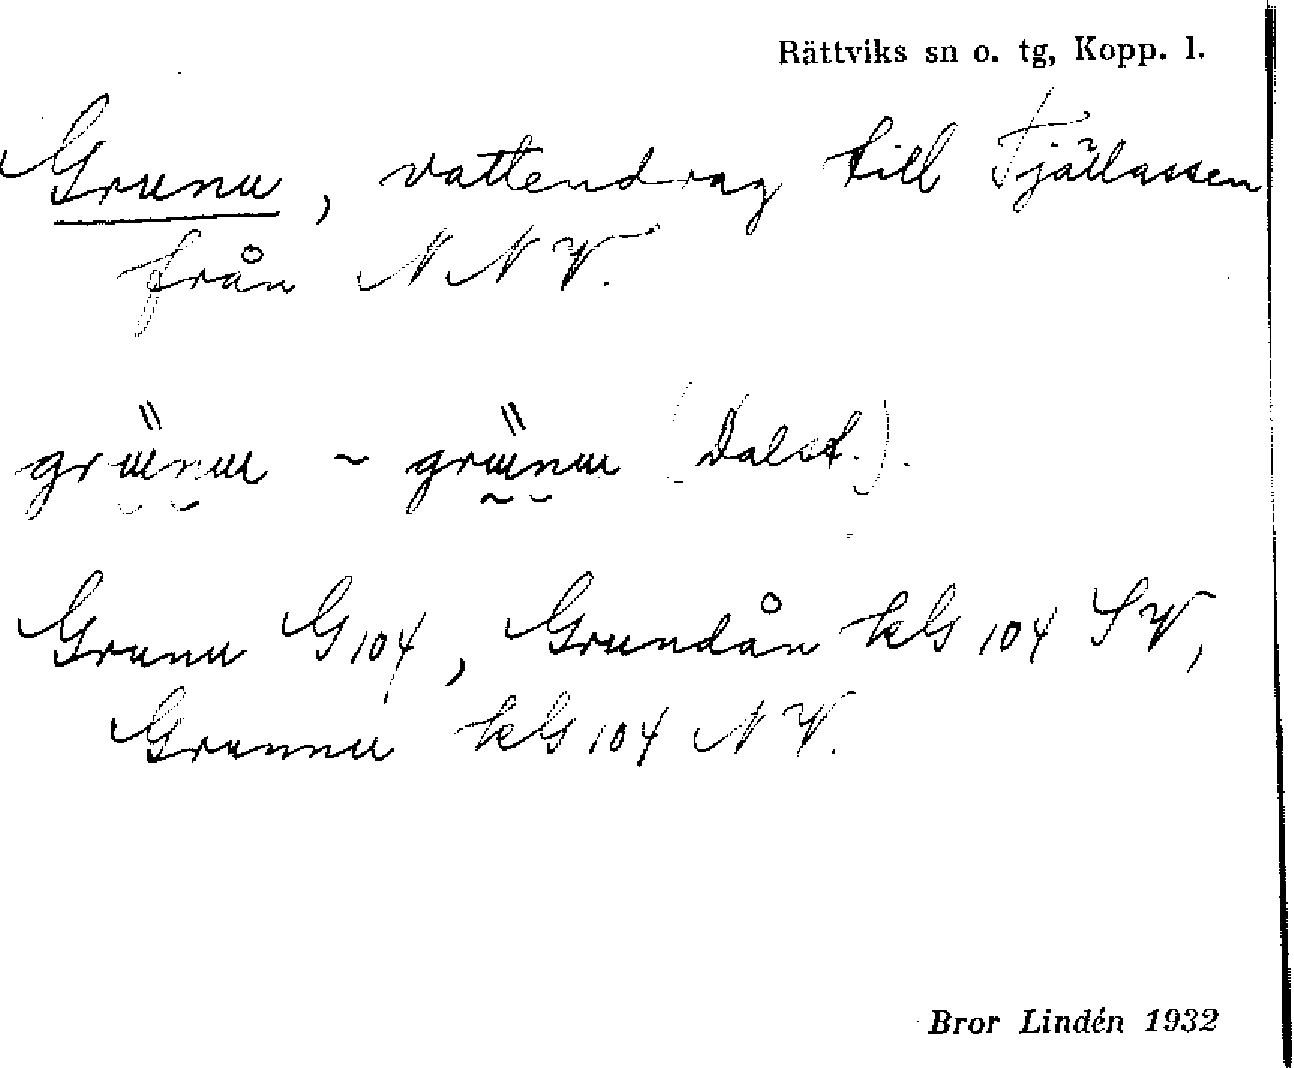 Rättviks sn o. tg, Kopp. l.
Grunu, vattendrag till Fjällassen
från N N V.
~ (Dalst.).
Grunu G 104, Grundån kG 104 SV,
Grunnu kG 104 NV.
Bror Lindén 1932